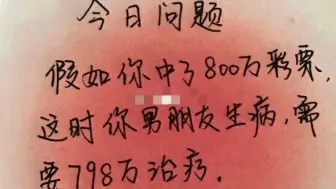 今日问题
假如你中了800万彩票,
这时你男朋友生病,需
要798万治疗.